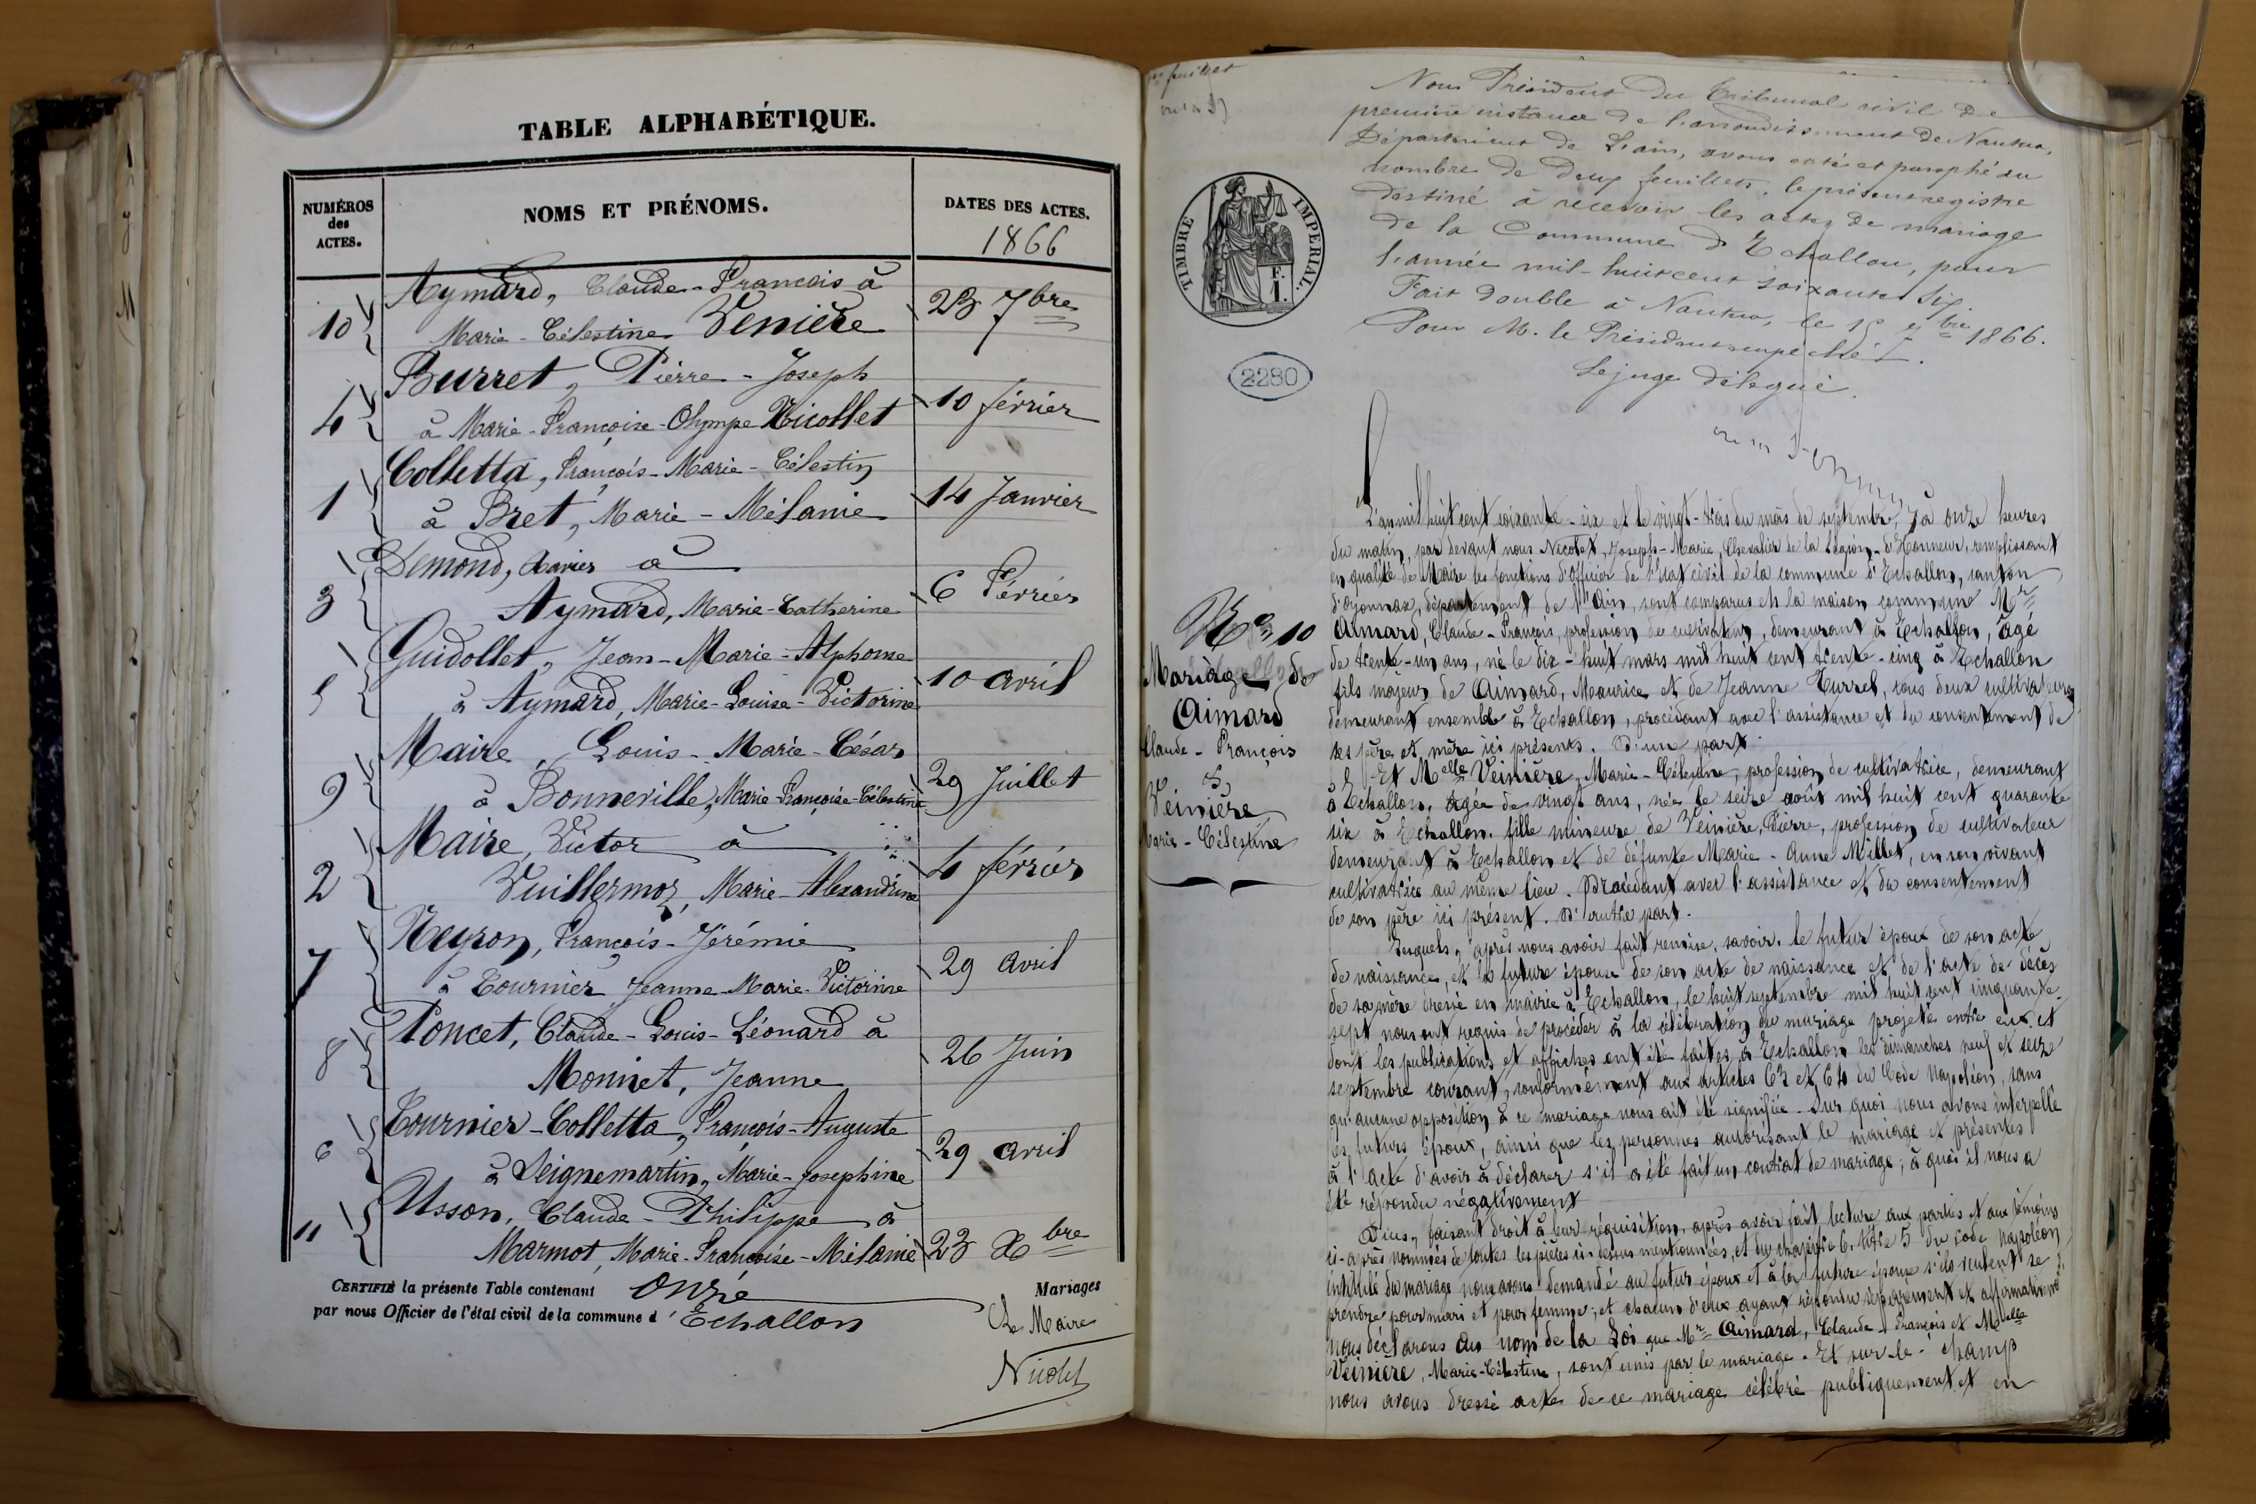 TABLE ALPHABÉTIQUE.
NUMÉROS des ACTES.
NOMS ET PRÉNOMS.
DATES DES ACTES.
1866
Aymard, Claude-François à
10 Marie-Célestine Venière 23 7bre
Burret, Pierre-Joseph
4 à Marie-Françoise-Olympe Nicollet 10 février
Colletta, François-Marie-Célestin
1 à Bret, Marie-Mélanie 14 Janvier
Demond, Xavier à
3 Aymard, Marie-Catherine 6 Février
Guidollet, Jean-Marie-Alphonse
5 à Aymard, Marie-Louise-Victorine 10 avril
Maire, Louis-Marie-César
9 à Bonneville, Marie-Françoise-Célestine 29 Juillet
Maire, Victor à
2 Vuillermoz, Marie-Alexandrine 4 février
Neyron, François-Jérémie
7 à Tournier Jeanne-Marie-Victorine 29 avril
Poncet, Claude-Louis-Léonard à
8 Monnet, Jeanne 26 Juin
Tournier-Colletta, François-Auguste
6 à Seignemartin, Marie-Josephine 29 avril
Usson, Claude-Philippe à
11 Marmot, Marie-Françoise-Mélanie 23 Xbre
CERTIFIÉ la présente Table contenant onze Mariages
par nous Officier de l'état civil de la commune d'Echallon
Le Maire
Nicolet
Nous Président du Tribunal civil de
première instance de l'arrondissement de Nantua,
Département de l'ain, avons coté et paraphé au
nombre de deux feuillets, le présent registre
destiné à recevoir les actes de mariage
de la Commune d'Echallon, pour
l'année mil-huit cent soixante six
Fait double à Nantua, le 15 7bre 1866.
Pour M. le Président empêché
Le juge délégué.
TIMBRE IMPERIAL.
F. I.
2280
No 10
Mariage de
Aimard
Claude-François
&
Véinière
Marie-Célestine
L'an mil huit cent soixante-six et le vingt-trois du mois de septembre, à onze heures
du matin, par devant nous Nicolet, Joseph-Marie, Chevalier de la Légion-d'Honneur, remplissant
en qualité de Maire les fonctions d'Officier de l'Etat civil de la commune d'Echallon, canton
d'oyonnax, département de l'Ain, sont comparus en la maison commune Mr
Aimard, Claude-François, profession de cultivateur, demeurant à Echallon, âgé
de trente-un ans, né le dix-huit mars mil huit cent trente-cinq à Echallon
fils majeur de Aimard, Maurice et de Jeanne Burret, tous deux cultivateurs
demeurant ensemble à Echallon, procédant avec l'assistance et du consentement de
ses père et mère ici présents. D'une part.
Et Melle Veinière, Marie-Célestine, profession de cultivatrice, demeurant
à Echallon, âgée de vingt ans, née le seize août mil huit cent quarante
six à Echallon. fille mineure de Veinière, Pierre, profession de cultivateur
demeurant à Echallon et de défunte Marie-Anne Millet, en son vivant
cultivatrice au même lieu. Procédant avec l'assistance et du consentement
de son père ici présent. D'autre part.
Lesquels, après nous avoir fait remise, savoir, le futur époux de son acte
de naissance, et la future épouse de son acte de naissance et de l'acte de décès
de sa mère dressé en mairie à Echallon, le huit septembre mil huit cent cinquante-
sept nous ont requis de procéder à la célébration du mariage projeté entre eux et
dont les publications et affiches ont été faites à Echallon les dimanches neuf et seize
septembre courant, conformément aux articles 63 et 64 du Code Napoléon, sans
qu'aucune opposition à ce mariage nous ait été signifiée. Sur quoi nous avons interpellé
les futurs époux, ainsi que les personnes autorisant le mariage et présentes
à l'acte d'avoir à déclarer s'il a été fait un contrat de mariage; à quoi il nous a
été répondu négativement
D'eux, faisant droit à leur réquisition, après avoir fait lecture aux parties et aux témoins
ci-après nommés de toutes les pièces ci-dessus mentionnées, et du chapitre 6. titre 5 du Code Napoléon
intitulé du mariage nous avons demandé au futur époux et à la future épouse s'ils veulent se
prendre pour mari et pour femme; et chacun d'eux ayant répondu séparément et affirmativement
nous déclarons au nom de la Loi que Mr Aimard, Claude-François et Melle
Veinière, Marie-Célestine, sont unis par le mariage. Et sur-le-champ
nous avons dressé acte de ce mariage célébré publiquement et en